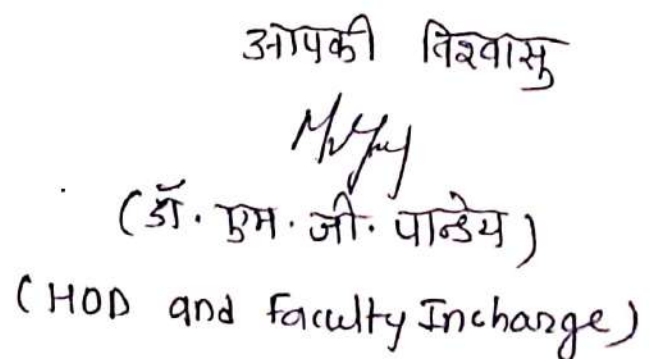 आपकी विश्वासु
(डॉ. एम. जी. पान्डेय)
(HOD and Faculty Incharge)